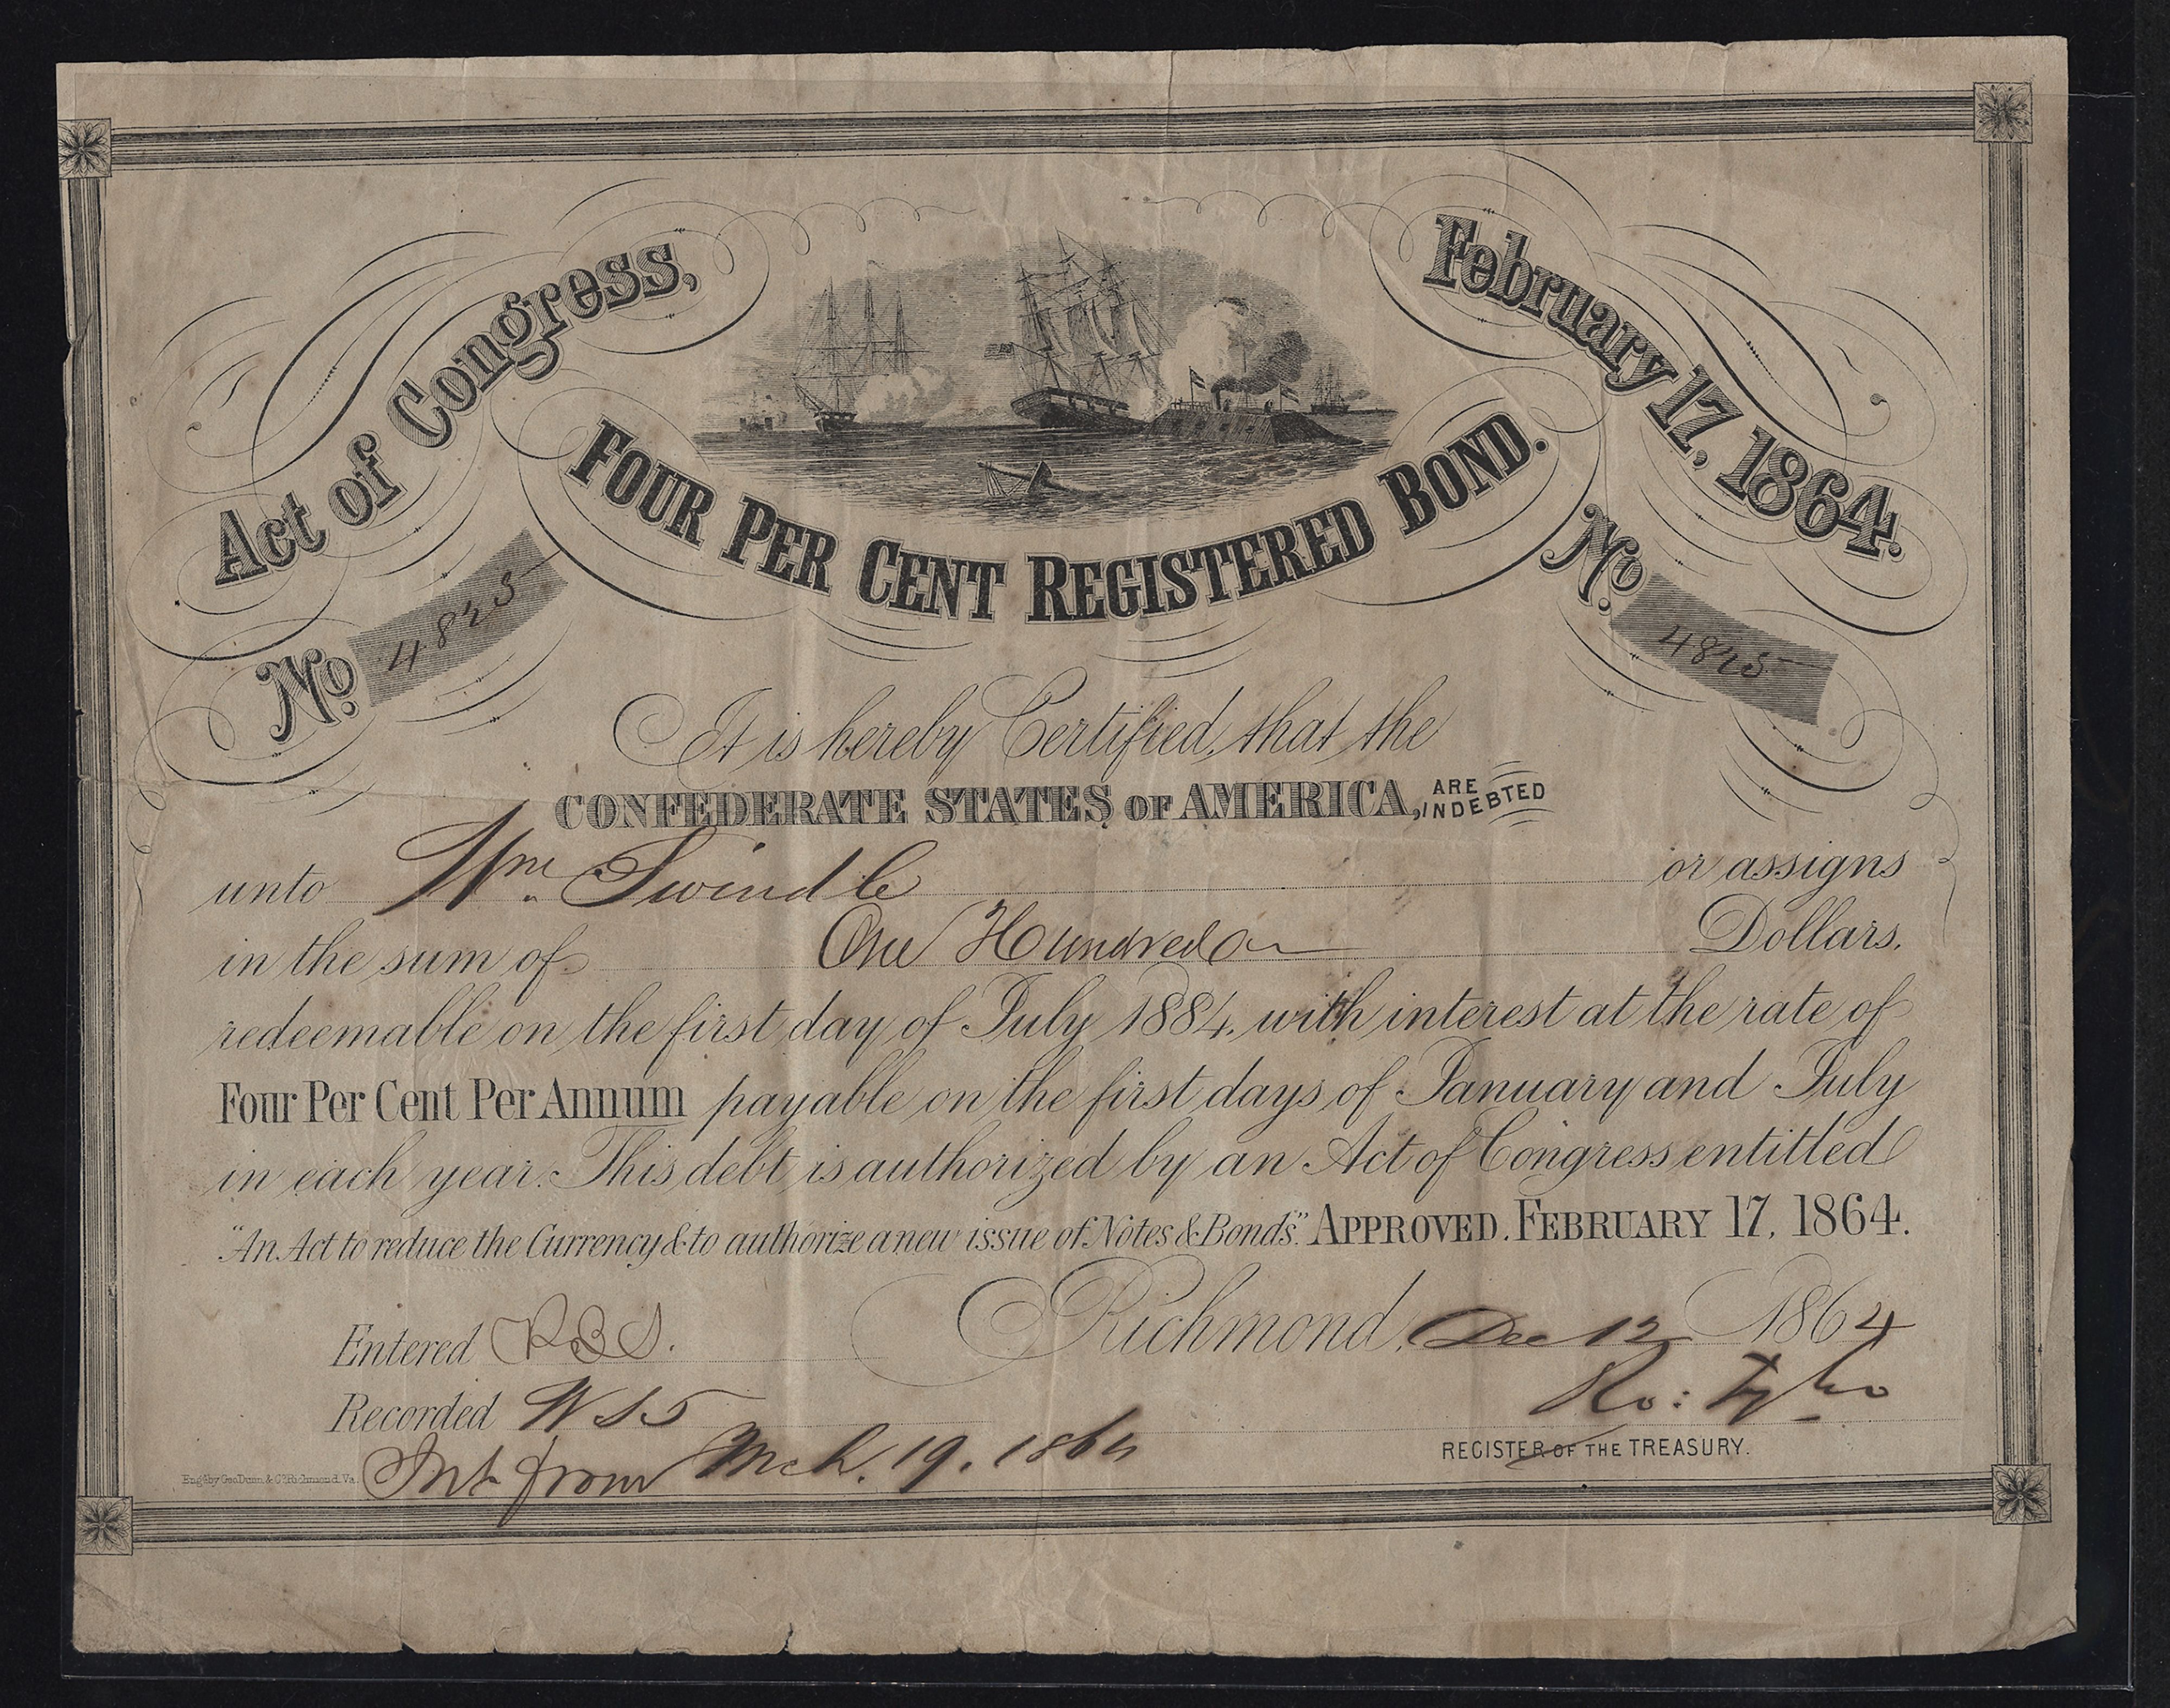 Act of Congress,
February 17, 1864.
FOUR PER CENT REGISTERED BOND.
No. 4825
No. 4825
It is hereby Certified, that the
CONFEDERATE STATES OF AMERICA, ARE INDEBTED
unto Wm. Swindle or assigns
in the sum of One Hundred Dollars,
redeemable on the first day of July 1884, with interest at the rate of
Four Per Cent Per Annum payable on the first days of January and July
in each year. This debt is authorized by an Act of Congress entitled
"An Act to reduce the Currency & to authorize a new issue of Notes & Bonds." APPROVED. FEBRUARY 17, 1864.
Richmond, Dec 12 1864
Entered RBS.
Ro: Tyler
Recorded
REGISTER OF THE TREASURY.
Int from Mch. 19. 1864
Engd. by Geo Dunn & Co. Richmond. Va.